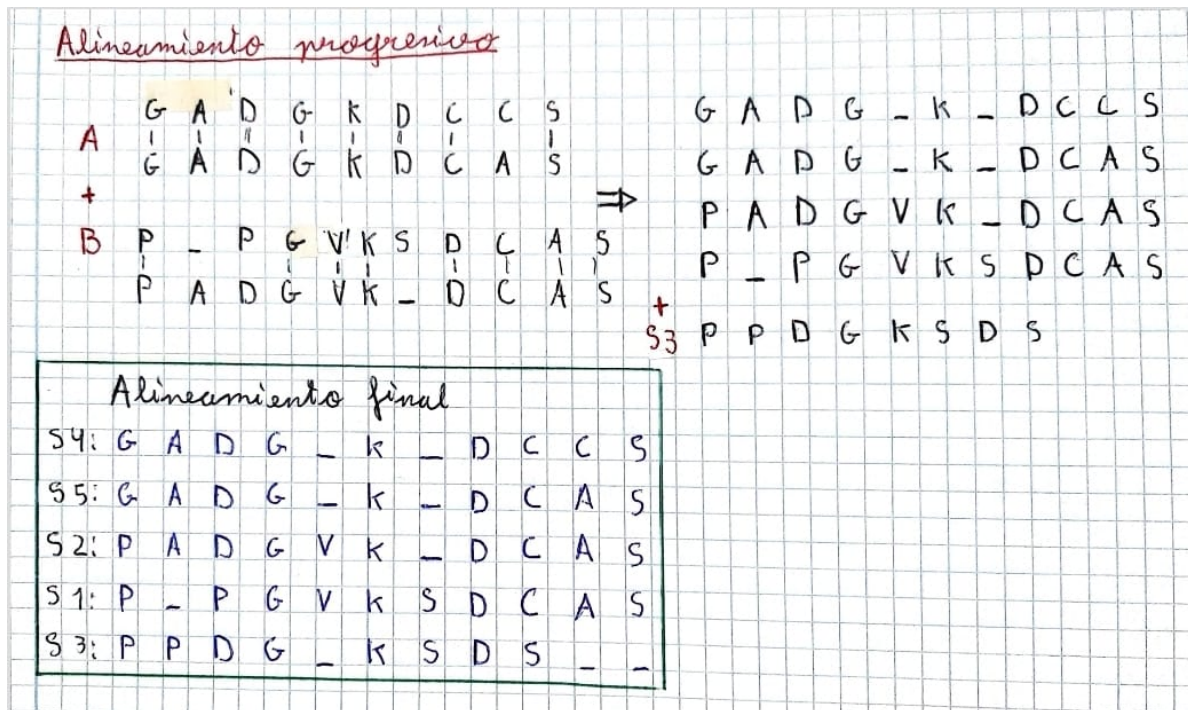 Alineamiento progresivo
A
G A D G K D C C S
G A D G K D C A S
+
B
P _ P G V K S D C A S
P A D G V K _ D C A S
⇒
G A D G _ K _ D C C S
G A D G _ K _ D C A S
P A D G V K _ D C A S
P _ P G V K S D C A S
+
S3 P P D G K S D S
Alineamiento final
S4: G A D G _ K _ D C C S
S5: G A D G _ K _ D C A S
S2: P A D G V K _ D C A S
S1: P _ P G V K S D C A S
S3: P P D G _ K S D S _ _